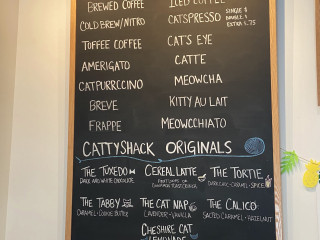 BREWED COFFEE
ICED COFFEE
COLD BREW/NITRO
CATSPRESSO
SINGLE $
DOUBLE $
EXTRA $.75
TOFFEE COFFEE
CAT'S EYE
AMERIGATO
CATTE
CATPURRCCINO
MEOWCHA
BREVE
KITTY AU LAIT
FRAPPE
MEOWCCHIATO
CATTYSHACK ORIGINALS
THE TUXEDO
DARK AND WHITE CHOCOLATE
CEREAL LATTE
THE TORTIE
DARK CHOC-CARAMEL-SPICE
THE TABBY
CARAMEL-COOKIE BUTTER
THE CAT NAP
LAVENDER-VANILLA
THE CALICO
SALTED CARAMEL-HAZELNUT
CHESHIRE CAT
LEMONADE